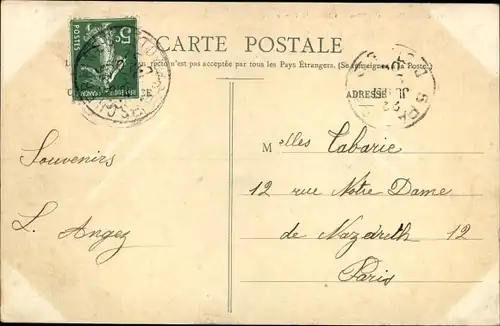 CARTE POSTALE
n'est pas acceptée par tous les Pays Étrangers. (Se renseigner à la Poste.)
5c
POSTES
ADRESSE
Souvenirs
L. Angez
Melles Tabarie
12 rue Notre Dame
de Nazareth 12
Paris